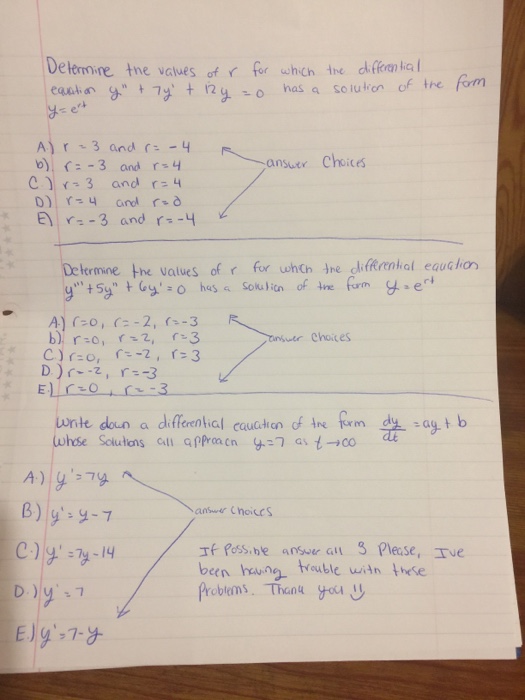 Determine the values of r for which the differential
equation y" + 7y' + 12y = 0 has a solution of the form
y = e^rt
A) r = 3 and r = -4
b) r = -3 and r = 4
C.) r = 3 and r = 4
D) r = 4 and r = 0
E) r = -3 and r = -4
answer Choices
Determine the values of r for which the differential equation
y''' + 5y" + 6y' = 0 has a solution of the form y = e^rt
A.) r=0, r=-2, r=-3
b) r=0, r=2, r=3
C) r=0, r=-2, r=3
D.) r=-2, r=-3
E.) r=0, r=-3
answer choices
Write down a differential equation of the form dy/dt = ay + b
whose Solutions all approach y=7 as t→∞
A.) y' = 7y
B.) y' = y - 7
C.) y' = 7y - 14
D.) y' = 7
E.) y' = 7 - y
answer choices
If Possible answer all 3 Please, Ive
been having trouble with these
Problems. Thank you !!